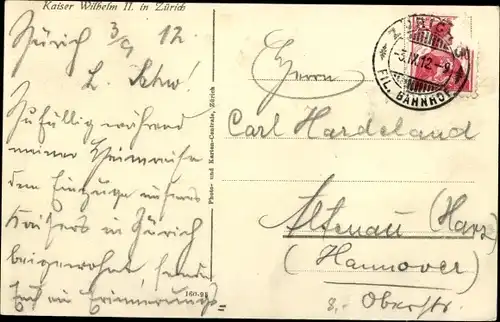 Kaiser Wilhelm II. in Zürich
Zürich 3/9 12.
L. Schw!
Zufällig während
meiner Heimreise
dem Einzuge unseres
Kaisers in Zürich
beigewohnt sende
Euch ein Erinnerungs=
Photo- und Karten-Centrale, Zürich
160.98
ZÜRICH
-3.IX.12.-9
FIL. BAHNHOF
Herrn
Carl Hardeland
Altenau (Harz
(Hannover)
Oberstr.